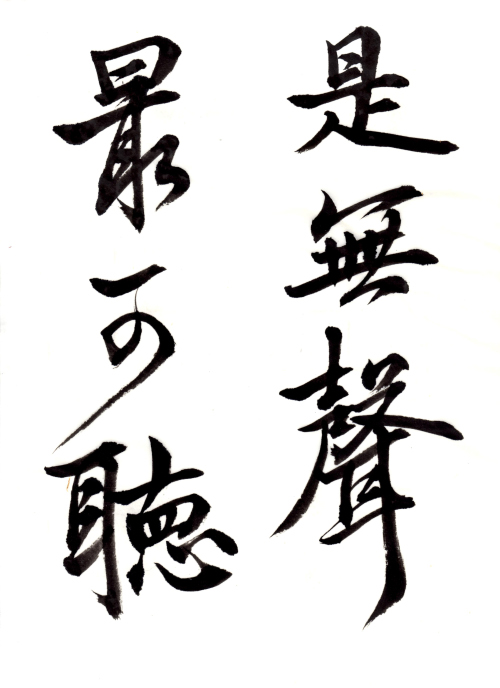 是無聲
最可聴